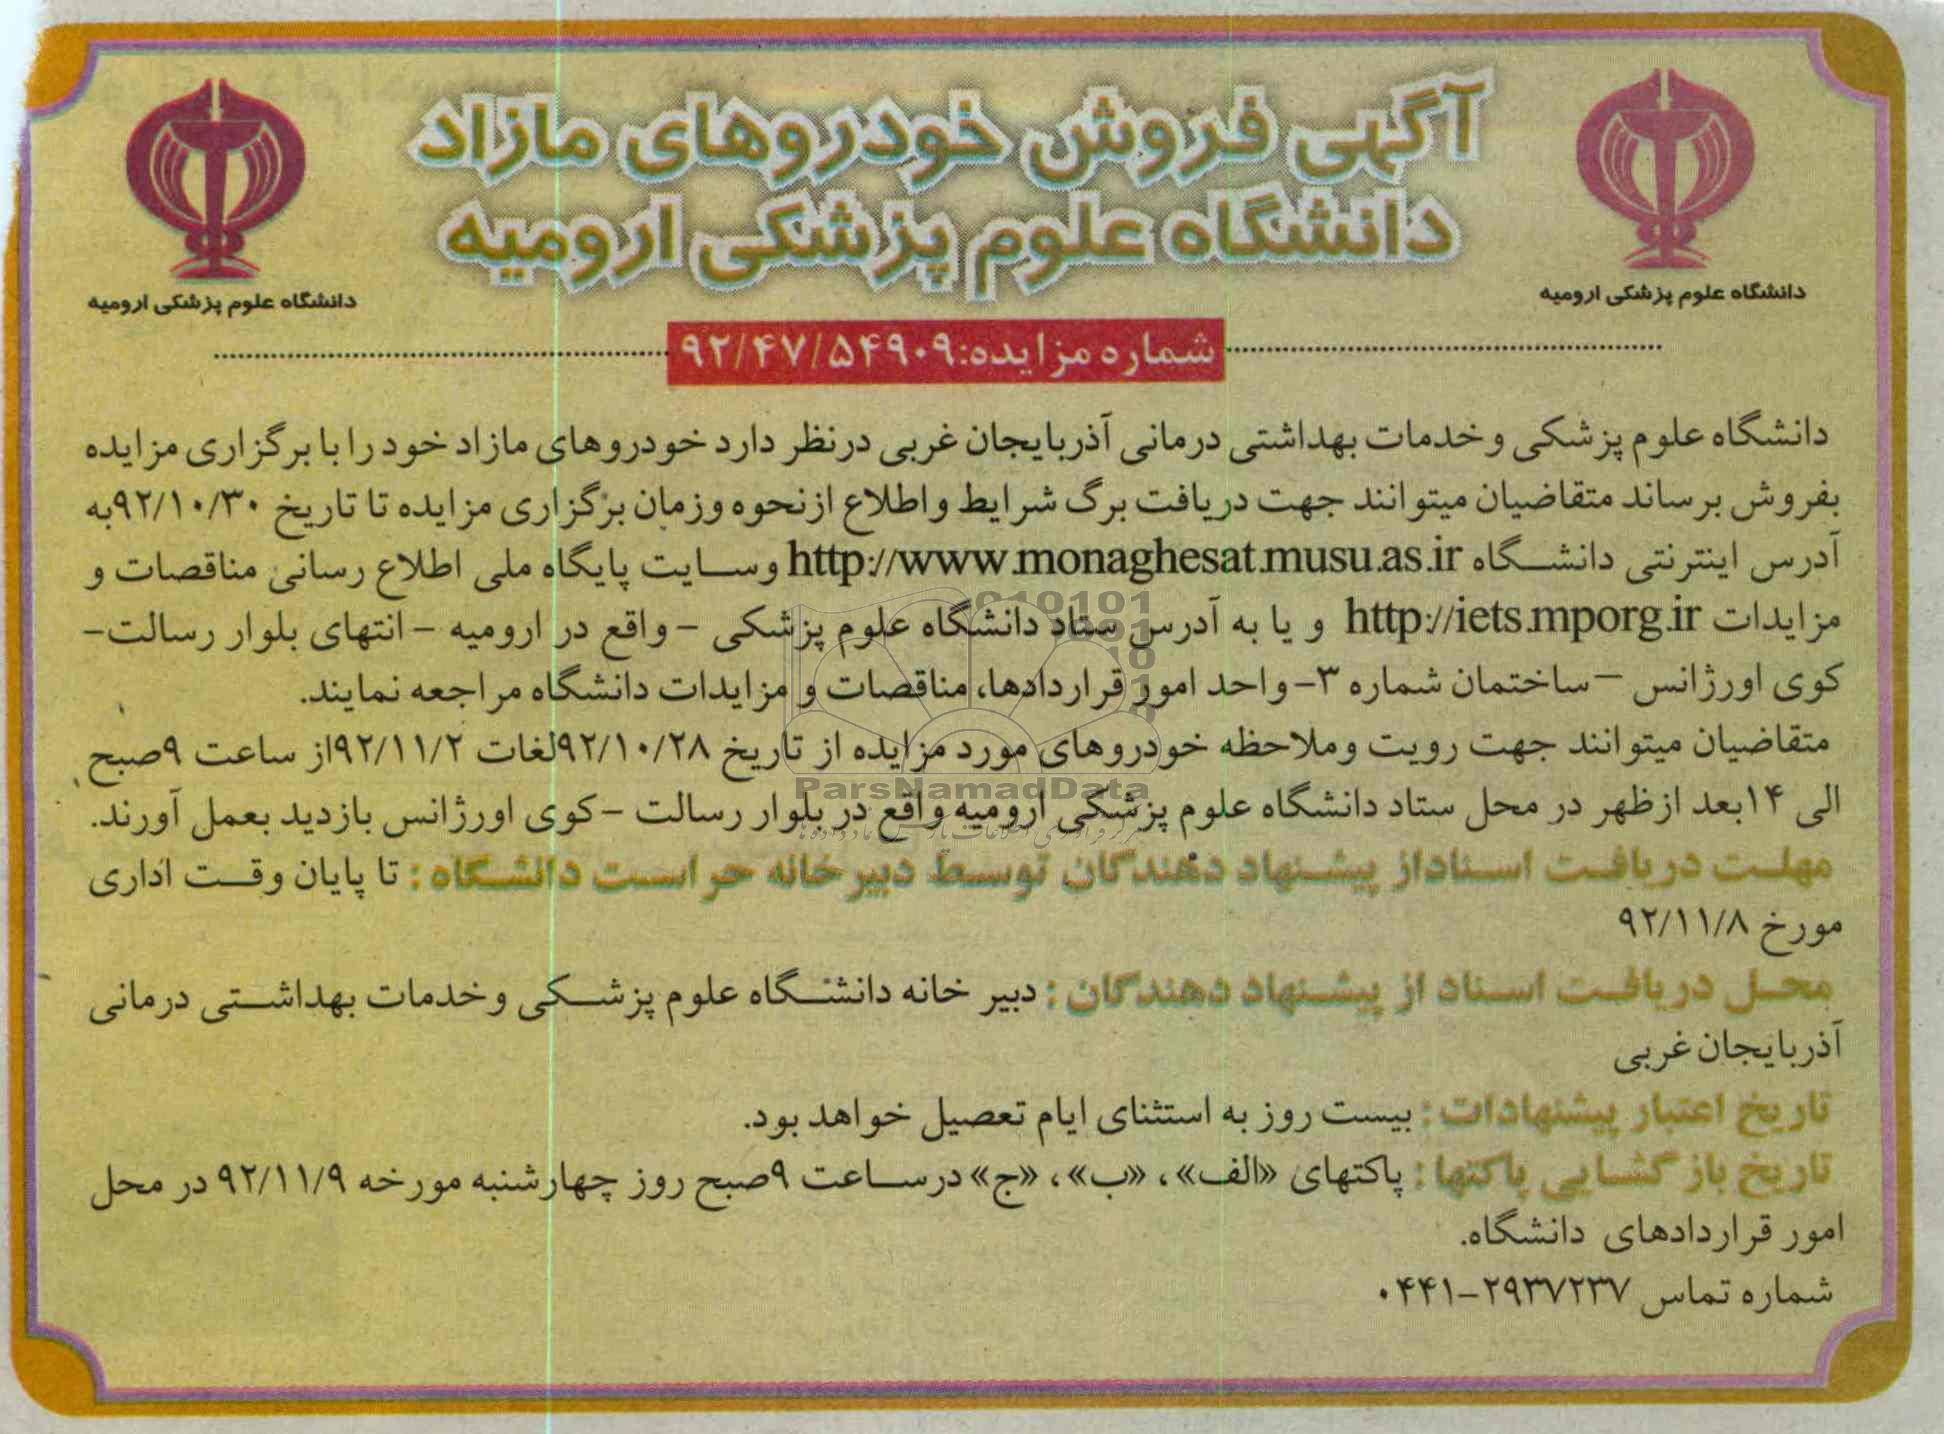 آگهی فروش خودروهای مازاد
دانشگاه علوم پزشکی ارومیه
دانشگاه علوم پزشکی ارومیه
دانشگاه علوم پزشکی ارومیه
شماره مزایده: ۹۲/۴۷/۵۴۹۰۹
دانشگاه علوم پزشکی و خدمات بهداشتی درمانی آذربایجان غربی درنظر دارد خودروهای مازاد خود را با برگزاری مزایده
بفروش برساند متقاضیان میتوانند جهت دریافت برگ شرایط و اطلاع ازنحوه وزمان برگزاری مزایده تا تاریخ ۹۲/۱۰/۳۰به
آدرس اینترنتی دانشگاه http://www.monaghesat.musu.as.ir وسایت پایگاه ملی اطلاع رسانی مناقصات و
مزایدات http://iets.mporg.ir و یا به آدرس ستاد دانشگاه علوم پزشکی – واقع در ارومیه – انتهای بلوار رسالت–
کوی اورژانس – ساختمان شماره ۳– واحد امور قراردادها، مناقصات و مزایدات دانشگاه مراجعه نمایند.
متقاضیان میتوانند جهت رویت وملاحظه خودروهای مورد مزایده از تاریخ ۹۲/۱۰/۲۸لغات ۹۲/۱۱/۲از ساعت ۹صبح
الی ۱۴بعد ازظهر در محل ستاد دانشگاه علوم پزشکی ارومیه واقع در بلوار رسالت –کوی اورژانس بازدید بعمل آورند.
مهلت دریافت اسناداز پیشنهاد دهندگان توسط دبیرخانه حراست دانشگاه : تا پایان وقت اداری
مورخ ۹۲/۱۱/۸
محل دریافت اسناد از پیشنهاد دهندگان : دبیر خانه دانشگاه علوم پزشکی و خدمات بهداشتی درمانی
آذربایجان غربی
تاریخ اعتبار پیشنهادات : بیست روز به استثنای ایام تعصیل خواهد بود.
تاریخ باز گشایی پاکتها : پاکتهای «الف»، «ب»، «ج» درساعت ۹صبح روز چهارشنبه مورخه ۹۲/۱۱/۹ در محل
امور قراردادهای دانشگاه.
شماره تماس ۲۹۳۷۲۳۷–۰۴۴۱
ParsNamadData